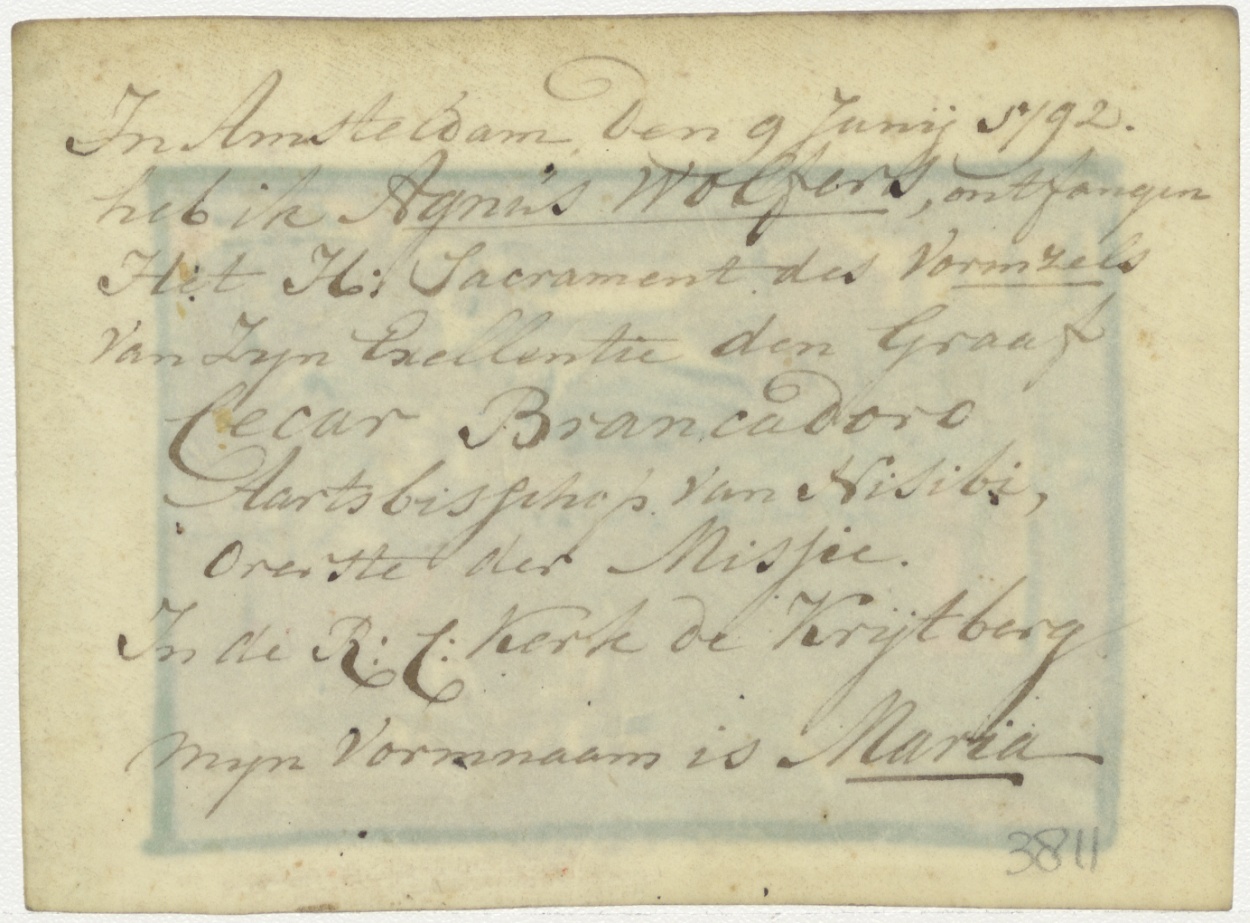 In Amsteldam, Den 9 Junij 1792.
heb ik Agnus Wolfers, ontfangen
Het H: Sacrament des Vormzels
Van Zyn Exellentie den Graaf
Cecar Brancadoro
Aartsbisschop van Nisibi,
Overste der Missie.
In de R: C: Kerk de Krijtberg
myn Vormnaam is Maria
3811